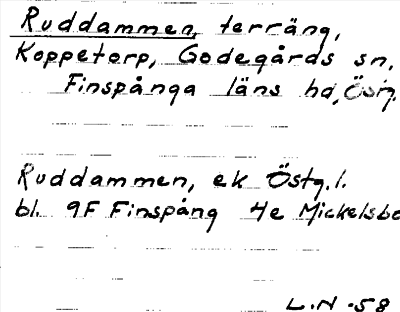 Ruddammen, terräng,
Koppetorp, Godegårds sn,
Finspånga läns hd, Östg.
Ruddammen, ek Östg.l.
bl. 9F Finspång 4e Mickelsbo
L.N -58